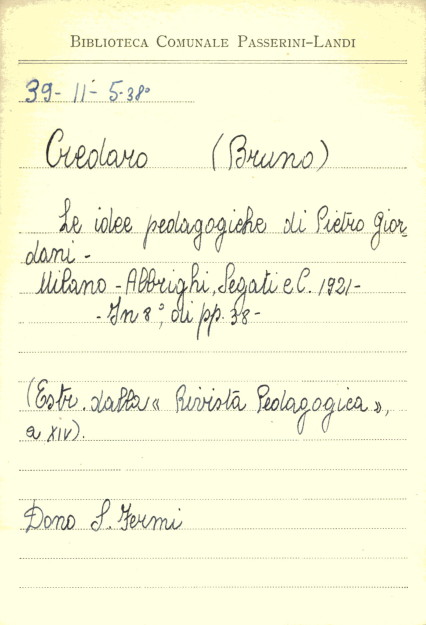 BIBLIOTECA COMUNALE PASSERINI-LANDI
39- II- 5-38°
Credaro (Bruno)
Le idee pedagogiche di Pietro Gior-
dani -
Milano - Albrighi, Segati e C. 1921-
- In 8°, di pp. 38-
(Estr. dalla « Rivista Pedagogica »,
a XIV).
Dono S. Fermi